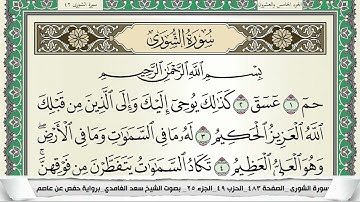 الجزء الخامس والعشرون
سورة الشورى ٤٢
سُورَةُ الشُّورَىٰ
بِسْمِ اللَّهِ الرَّحْمَٰنِ الرَّحِيمِ
حمٓ ۝١ عٓسٓقٓ ۝٢ كَذَٰلِكَ يُوحِىٓ إِلَيْكَ وَإِلَى ٱلَّذِينَ مِن قَبْلِكَ
ٱللَّهُ ٱلْعَزِيزُ ٱلْحَكِيمُ ۝٣ لَهُۥ مَا فِى ٱلسَّمَٰوَٰتِ وَمَا فِى ٱلْأَرْضِ ۖ
وَهُوَ ٱلْعَلِىُّ ٱلْعَظِيمُ ۝٤ تَكَادُ ٱلسَّمَٰوَٰتُ يَتَفَطَّرْنَ مِن فَوْقِهِنَّ ۚ
سورة الشورى الصفحة ٤٨٣ الحزب ٤٩ الجزء ٢٥ - بصوت الشيخ سعد الغامدي برواية حفص عن عاصم